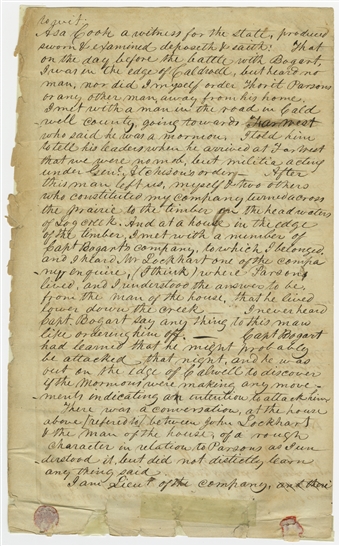 to, wit.
Asa Cook a witness for the state, produced
sworn & examined deposeth & saith: That
on the day before the battle with Bogart,
I was in the edge of Caldwell, but heard no
man, nor did I myself order Thorit Parsons
or any other man away from his home.
I met with a man in the road in Cald
well County, going towards Far West
who said he was a mormon. I told him
to tell his leaders when he arrived at Far West
that we were no mob, but militia acting
under Genl. Atchisons order — After
this man left us, myself & two others
who constituted my company turned across
the prairie to the timber on the head waters
of Log creek. And at a house in the edge
of the timber, I met with a number of
Capt Bogarts company, to which I belonged,
and I heard Mr Lockhart one of the compa
ny enquire, (I think) where Parsons
lived, and I understood the answer to be,
from the man of the house, that he lived
lower down the creek — I never heard
Capt. Bogart say any thing to this man
like ordering him off. — Capt Bogart
had learned that he might probably
be attacked that night, and he was
out on the edge of Calwell to discover
if the Mormons were making any move-
ments indicating an intention to attack him
There was a conversation, at the house
above (refered to) between John Lockhart
& the man of the house, of a rough
character in relation to Parsons as I un
derstood it, but did not distictly learn
any thing said
I am Lieut of the company, and there